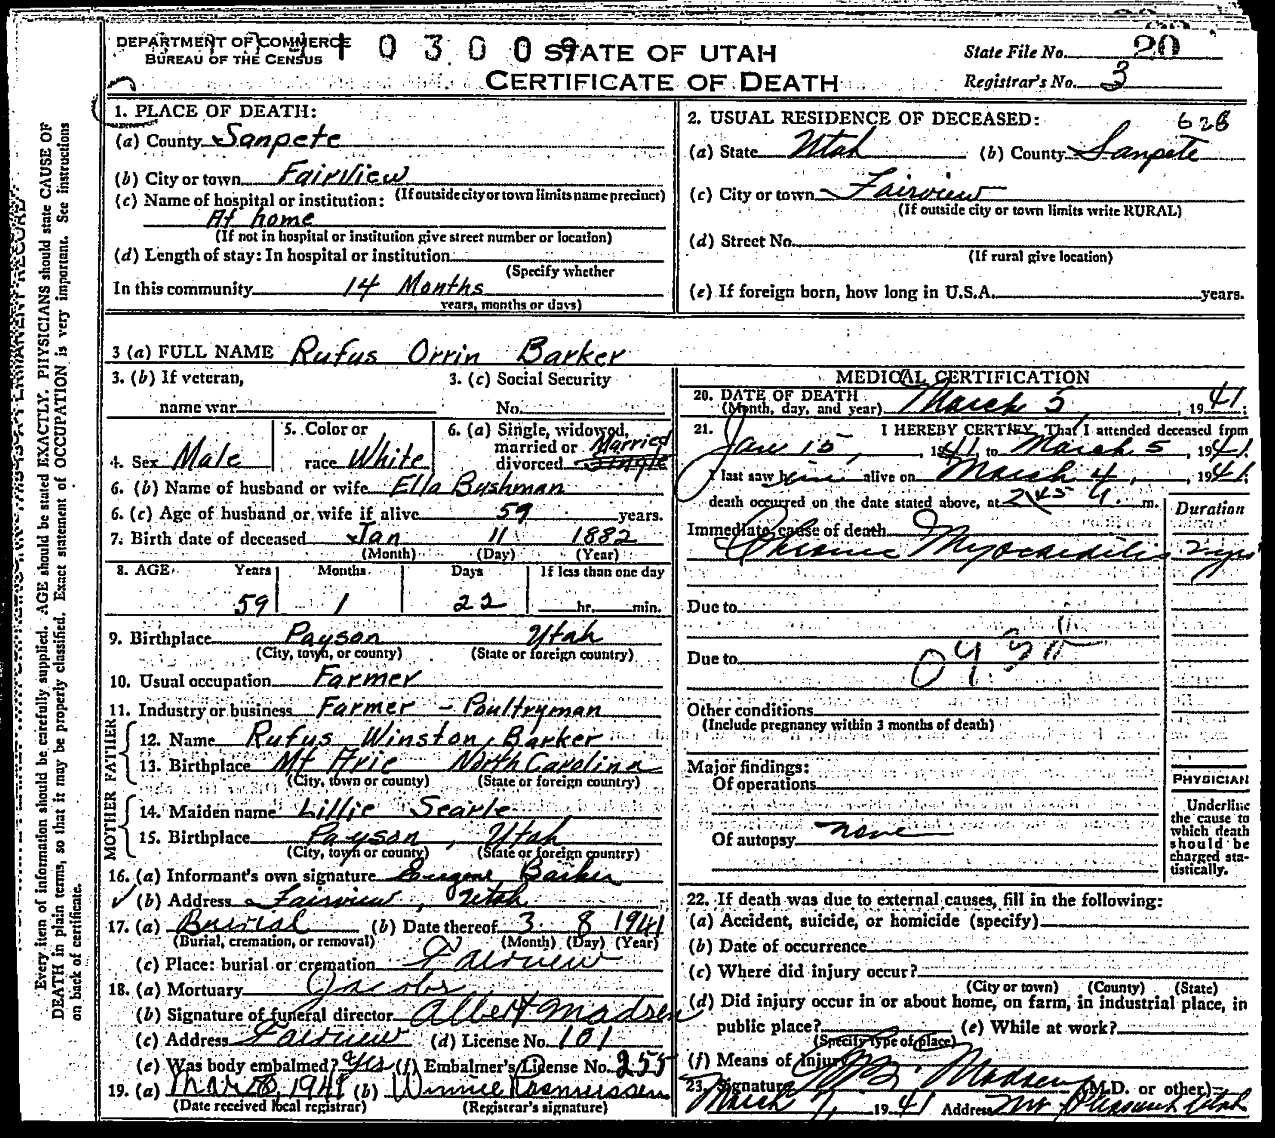 DEPARTMENT OF COMMERCE
BUREAU OF THE CENSUS
1 0 3 0 0 9
STATE OF UTAH
CERTIFICATE OF DEATH
State File No. 20
Registrar's No. 3
1. PLACE OF DEATH:
(a) County Sanpete
(b) City or town Fairview
(If outside city or town limits name precinct)
(c) Name of hospital or institution:
At home
(If not in hospital or institution give street number or location)
(d) Length of stay: In hospital or institution
(Specify whether
In this community 14 Months
years, months or days)
2. USUAL RESIDENCE OF DECEASED: 628
(a) State Utah (b) County Sanpete
(c) City or town Fairview
(If outside city or town limits write RURAL)
(d) Street No.
(If rural give location)
(e) If foreign born, how long in U.S.A. years.
3 (a) FULL NAME Rufus Orrin Barker
3. (b) If veteran,
name war
3. (c) Social Security
No.
4. Sex Male
5. Color or
race White
6. (a) Single, widowed,
married or Married
divorced Single
6. (b) Name of husband or wife Ella Bushman
6. (c) Age of husband or wife if alive 59 years.
7. Birth date of deceased Jan 11 1882
(Month) (Day) (Year)
8. AGE Years Months Days If less than one day
59 1 22 hr. min.
9. Birthplace Payson Utah
(City, town, or county) (State or foreign country)
10. Usual occupation Farmer
11. Industry or business Farmer - Poultryman
FATHER
12. Name Rufus Winston Barker
13. Birthplace Mt Arie North Carolina
(City, town or county) (State or foreign country)
MOTHER
14. Maiden name Lillie Searle
15. Birthplace Payson, Utah
(City, town or county) (State or foreign country)
16. (a) Informant's own signature Eugene Barker
(b) Address Fairview, Utah
17. (a) Burial (b) Date thereof 3 8 1941
(Burial, cremation, or removal) (Month) (Day) (Year)
(c) Place: burial or cremation Fairview
18. (a) Mortuary Jacobs
(b) Signature of funeral director Albert Madsen
(c) Address Fairview (d) License No. 101
(e) Was body embalmed? yes (f) Embalmer's License No. 255
19. (a) Mar 1941 (b) Winnie Rasmussen
(Date received local registrar) (Registrar's signature)
MEDICAL CERTIFICATION
20. DATE OF DEATH
(Month, day, and year) March 5, 1941;
21. I HEREBY CERTIFY, That I attended deceased from
Jan 15, 1941, to March 5, 1941.
I last saw him alive on March 4, 1941.
death occurred on the date stated above, at 2:45 a. m.
Duration
Immediate cause of death
Chronic Myocarditis 2 yrs
Due to
Due to
Other conditions
(Include pregnancy within 3 months of death)
Major findings:
Of operations
Of autopsy none
PHYSICIAN
Underline
the cause to
which death
should be
charged sta-
tistically.
22. If death was due to external causes, fill in the following:
(a) Accident, suicide, or homicide (specify)
(b) Date of occurrence
(c) Where did injury occur?
(City or town) (County) (State)
(d) Did injury occur in or about home, on farm, in industrial place, in
public place? (e) While at work?
(Specify type of place)
(f) Means of Injury
23. Signature Madsen (M.D. or other)
March 7, 1941 Address Mt Pleasant Utah
Every item of information should be carefully supplied. AGE should be stated EXACTLY. PHYSICIANS should state CAUSE OF
DEATH in plain terms, so that it may be properly classified. Exact statement of OCCUPATION is very important. See instructions
on back of certificate.